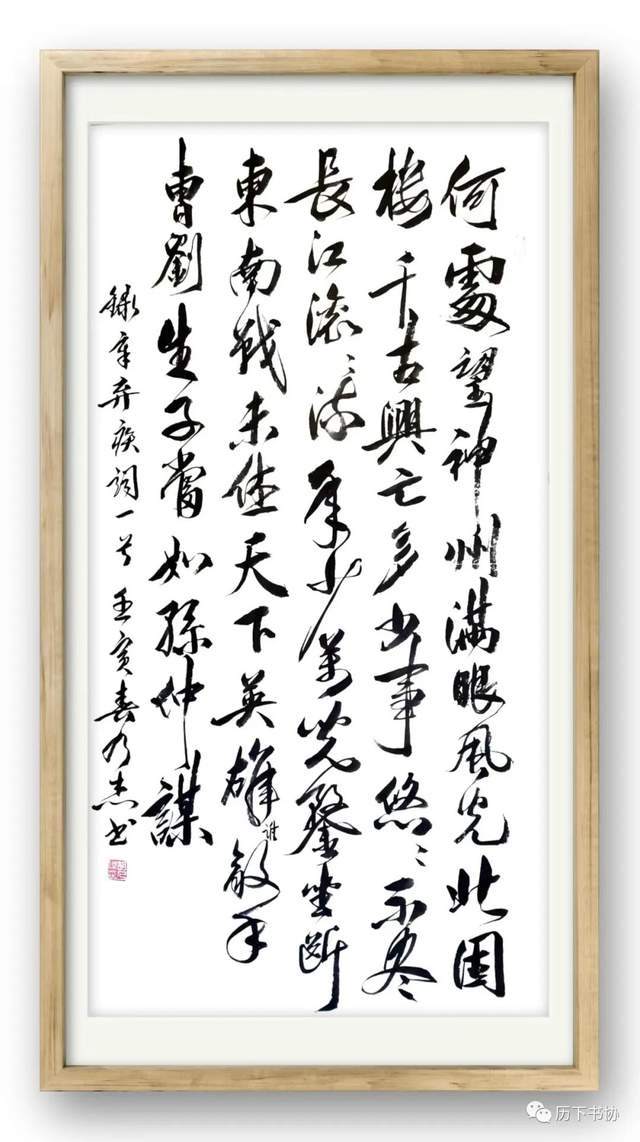 何處望神州滿眼風光北固
樓千古興亡多少事悠〻不盡
長江滾〻流年少萬兜鍪坐斷
東南戰未休天下英雄誰敵手
曹劉生子當如孫仲謀
録辛弃疾詞一首 壬寅春乃杰书
历下书协